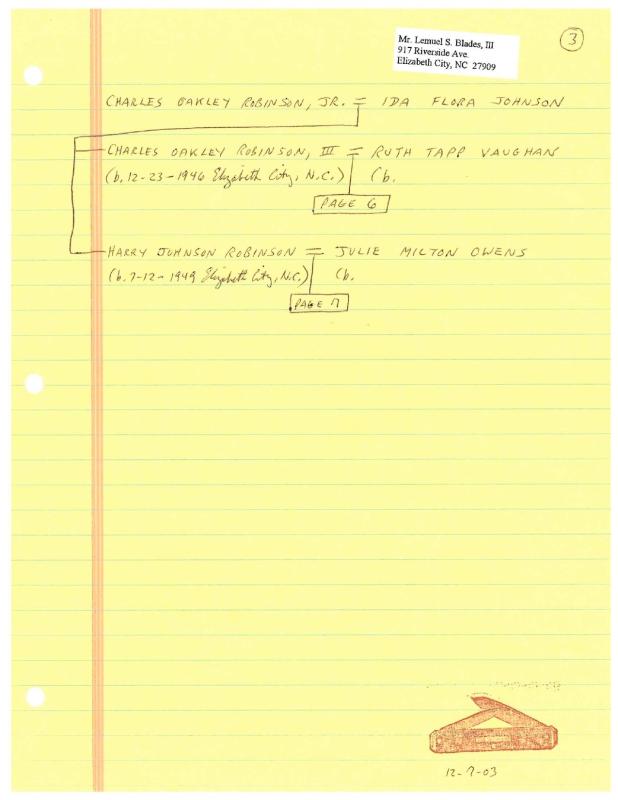 Mr. Lemuel S. Blades, III
917 Riverside Ave.
Elizabeth City, NC 27909
3
CHARLES OAKLEY ROBINSON, JR. = IDA FLORA JOHNSON
CHARLES OAKLEY ROBINSON, III = RUTH TAPP VAUGHAN
(b. 12-23-1946 Elizabeth City, N.C.) (b.
PAGE 6
HARRY JOHNSON ROBINSON = JULIE MILTON OWENS
(b. 7-12-1949 Elizabeth City, N.C.) (b.
PAGE 7
12-7-03